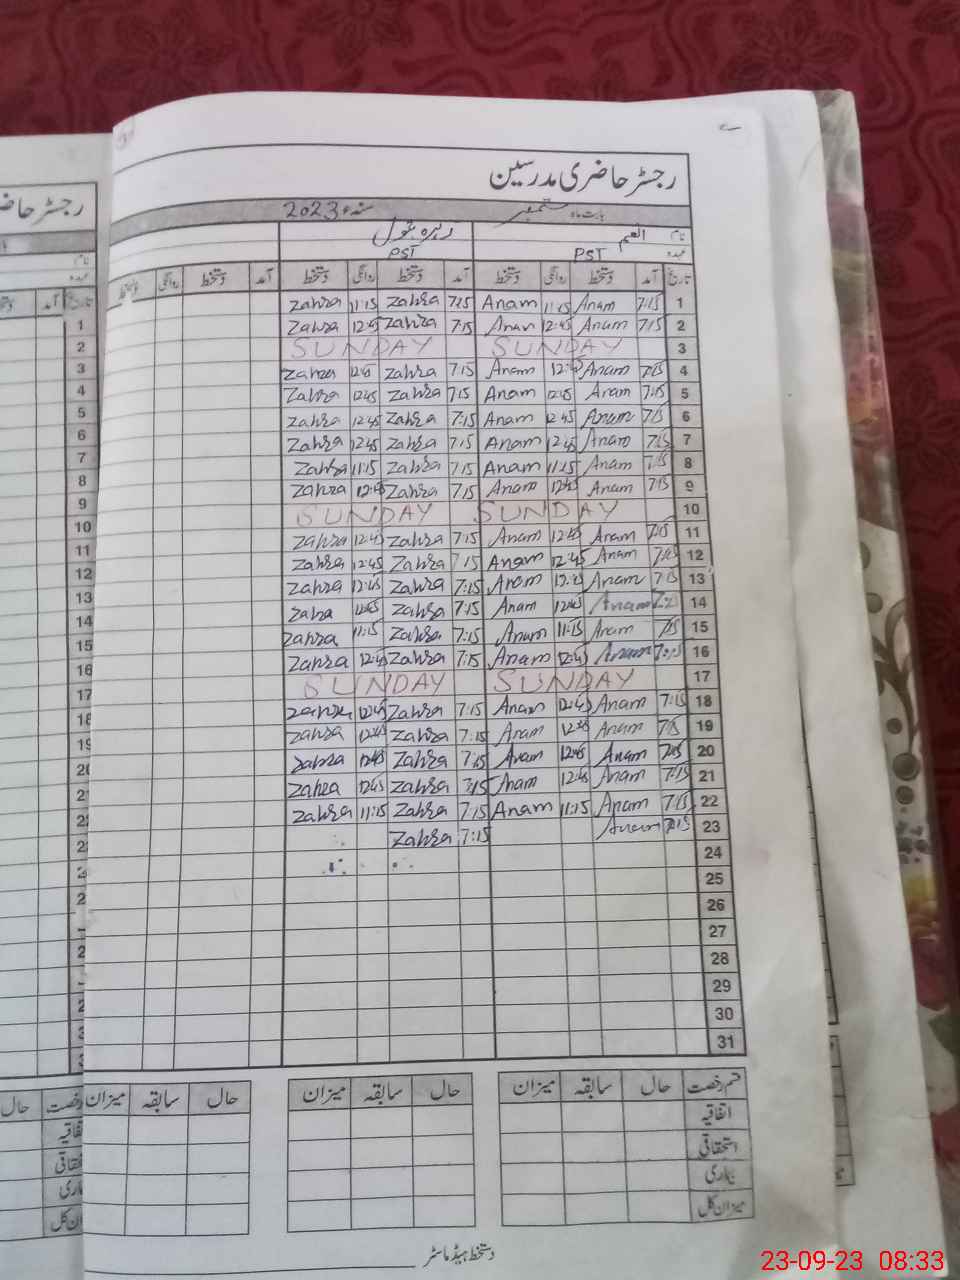 رجسٹر حاضری مدرسین
بابت ماہ ستمبر سنہء 2023
نام انعم زہرہ بتول
عہدہ PST PST
تاریخ آمد دستخط روانگی دستخط آمد دستخط روانگی دستخط آمد دستخط روانگی دستخط
1 7:15 Anam 11:15 Anam 7:15 Zahra 11:15 Zahra
2 7:15 Anam 12:45 Anam 7:15 Zahra 12:45 Zahra
3 SUNDAY SUNDAY
4 7:15 Anam 12:45 Anam 7:15 Zahra 12:45 Zahra
5 7:15 Anam 12:45 Anam 7:15 Zahra 12:45 Zahra
6 7:15 Anam 12:45 Anam 7:15 Zahra 12:45 Zahra
7 7:15 Anam 12:45 Anam 7:15 Zahra 12:45 Zahra
8 7:15 Anam 11:15 Anam 7:15 Zahra 11:15 Zahra
9 7:15 Anam 12:45 Anam 7:15 Zahra 12:45 Zahra
10 SUNDAY SUNDAY
11 7:15 Anam 12:45 Anam 7:15 Zahra 12:45 Zahra
12 7:15 Anam 12:45 Anam 7:15 Zahra 12:45 Zahra
13 7:15 Anam 12:45 Anam 7:15 Zahra 12:45 Zahra
14 Anam 12:45 Anam 7:15 Zahra 12:45 Zahra
15 7:15 Anam 11:15 Anam 7:15 Zahra 11:15 Zahra
16 7:15 Anam 12:45 Anam 7:15 Zahra 12:45 Zahra
17 SUNDAY SUNDAY
18 7:15 Anam 12:45 Anam 7:15 Zahra 12:45 Zahra
19 7:15 Anam 12:45 Anam 7:15 Zahra 12:45 Zahra
20 7:15 Anam 12:45 Anam 7:15 Zahra 12:45 Zahra
21 7:15 Anam 12:45 Anam 7:15 Zahra 12:45 Zahra
22 7:15 Anam 11:15 Anam 7:15 Zahra 11:15 Zahra
23 7:15 Anam 7:15 Zahra
24
25
26
27
28
29
30
31
قسم رخصت حال سابقہ میزان حال سابقہ میزان حال سابقہ میزان
اتفاقیہ
استحقاقی
بیماری
میزان کل
دستخط ہیڈ ماسٹر
23-09-23 08:33